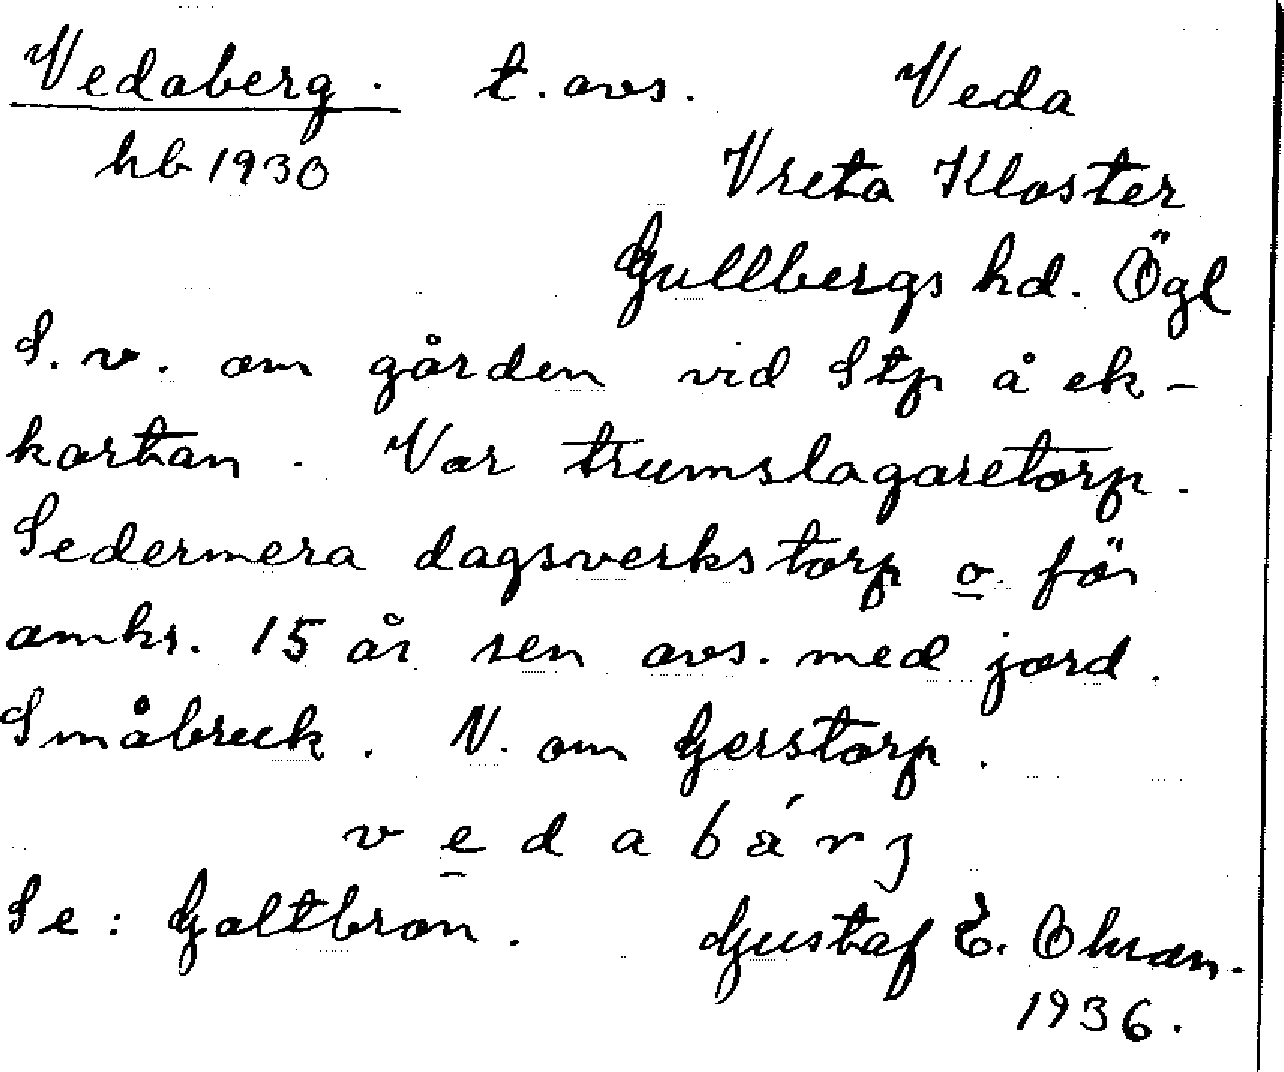 Vedaberg. t. avs. Veda
hb 1930 Vreta Kloster
Gullbergs hd. Ögl
S. v. om gården vid Stp å ek-
kartan. Var trumslagaretorp.
Sedermera dagsverkstorp o för
omkr. 15 år sen avs. med jord.
Småbruk. N. om Gerstorp.
v e d a b ä́ r j
Se: Galtbron. Gustaf E. Ohran.
1936.